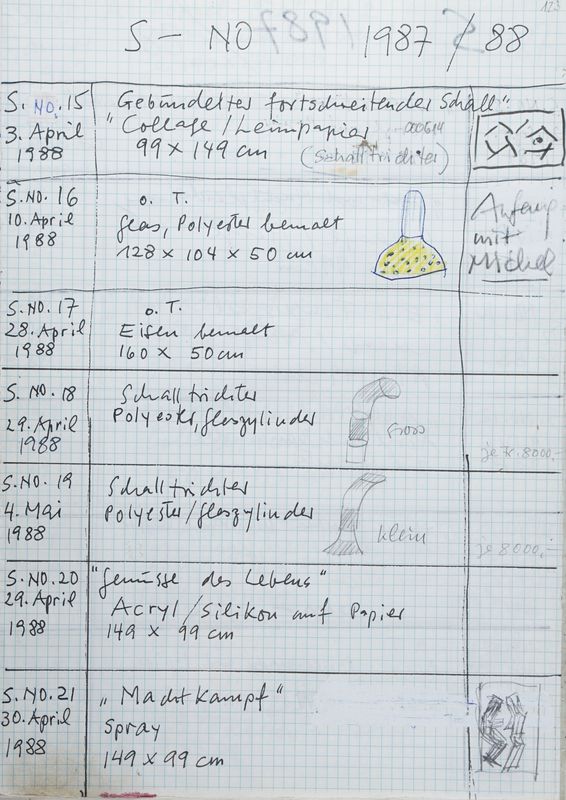 123
S - NO 1987 / 88
S. NO. 15
3. April
1988
Gebündelter fortschreitender Schall"
"Collage / Leimpapier 000614
99 x 149 cm (Schalltrichter)
S. NO. 16
10. April
1988
o. T.
Glas, Polyester bemalt
128 x 104 x 50 cm
Anfang
mit
Michel
S. NO. 17
28. April
1988
o. T.
Eisen bemalt
160 x 50 cm
S. NO. 18
29. April
1988
Schalltrichter
Polyester, Glaszylinder
gross
je Fr. 8000,-
S. NO. 19
4. Mai
1988
Schalltrichter
Polyester / Glaszylinder
klein
je 8000,-
S. NO. 20
29. April
1988
"Genüsse des Lebens"
Acryl / Silikon auf Papier
149 x 99 cm
S. NO. 21
30. April
1988
„Machtkampf"
Spray
149 x 99 cm